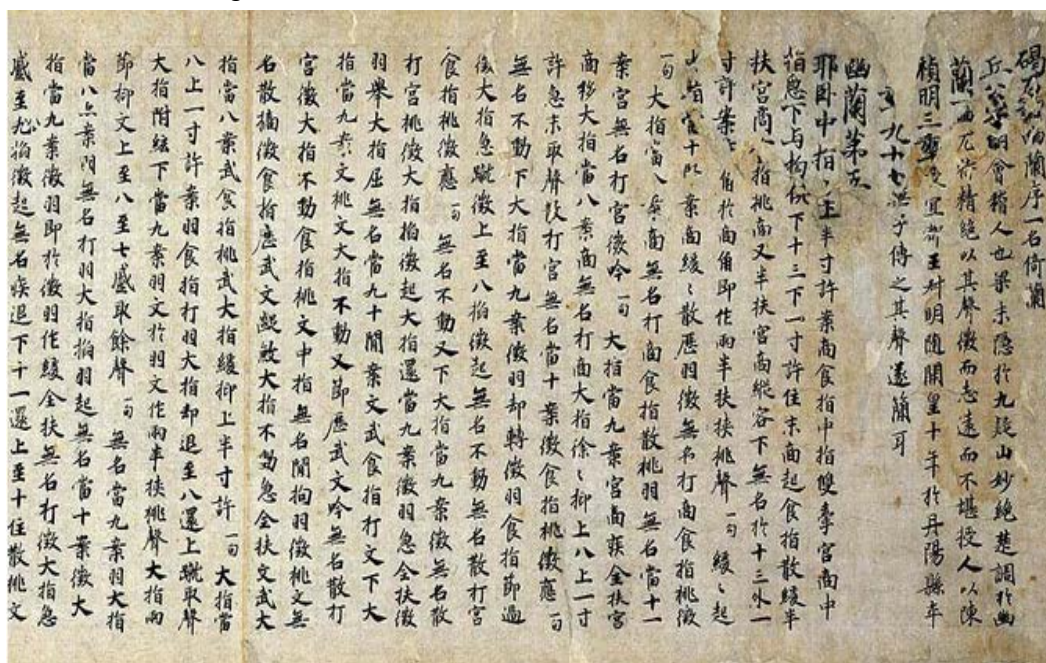 碣石調幽蘭序一名倚蘭
丘公字明會稽人也梁末隱於九疑山妙絶楚調於幽
蘭一曲尤特精絶以其聲微而志遠而不堪授人以陳
禎明三年授宜都王叔明隨開皇十年於丹陽縣卒
年九十七無子傳之其聲遂簡耳
幽蘭第五
耶臥中指〻半寸許案商食指中指雙牽宮商中
指急下与拘俱下十三下一寸許住末商起食指散緩半
扶宮商食指挑商又半扶宮商縱容下無名於十三外一
寸許案商角於商角即作兩半扶挾挑聲一句 緩〻起
無名不動十三案商緩〻散歷羽徵無名打商食指挑徵
一句 大指當八案商無名打商食指散挑羽無名當十一
案宮無名打宮徵吟一句 大指當九案宮商疾全扶宮
商移大指當八案商無名打商大指徐〻抑上八上一寸
許急末取聲散打宮無名當十案徵食指挑徵應一句
無名不動下大指當九案徵羽却轉徵羽食指節過
後大指急蹴徵上至八掐徵起無名不動無名散打宮
食指挑徵應一句 無名不動又下大指當九案徵無名散
打宮挑徵大指掐徵起大指還當九案徵羽急全扶徵
羽舉大指屈無名當九十間案文武食指打文下大
指當九案文挑文大指不動又節歷武文吟無名散打
宮徵大指不動食指挑文中指無名間拘羽徵挑文無
名散擿徵食指應武文蹤敏大指不動急全扶文武大
指當八案武食指挑武大指緩抑上半寸許一句 大指當
八上一寸許案羽食指打羽大指却退至八還上蹴取聲
大指附絃下當九案羽文於羽文作兩半挾挑聲大指兩
節抑文上至八至七蹙取餘聲一句 無名當九案羽大指
當八案羽無名打羽大指掐羽起無名當十案徵大
指當九案徵羽即於徵羽作緩全扶無名打徵大指急
蹙至九掐徵起無名疾退下十一還上至十住散挑文